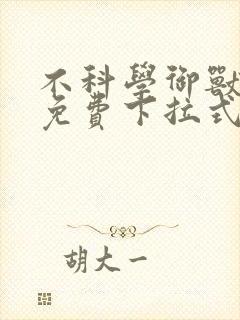 不科學御獸
免費下拉式
胡大一